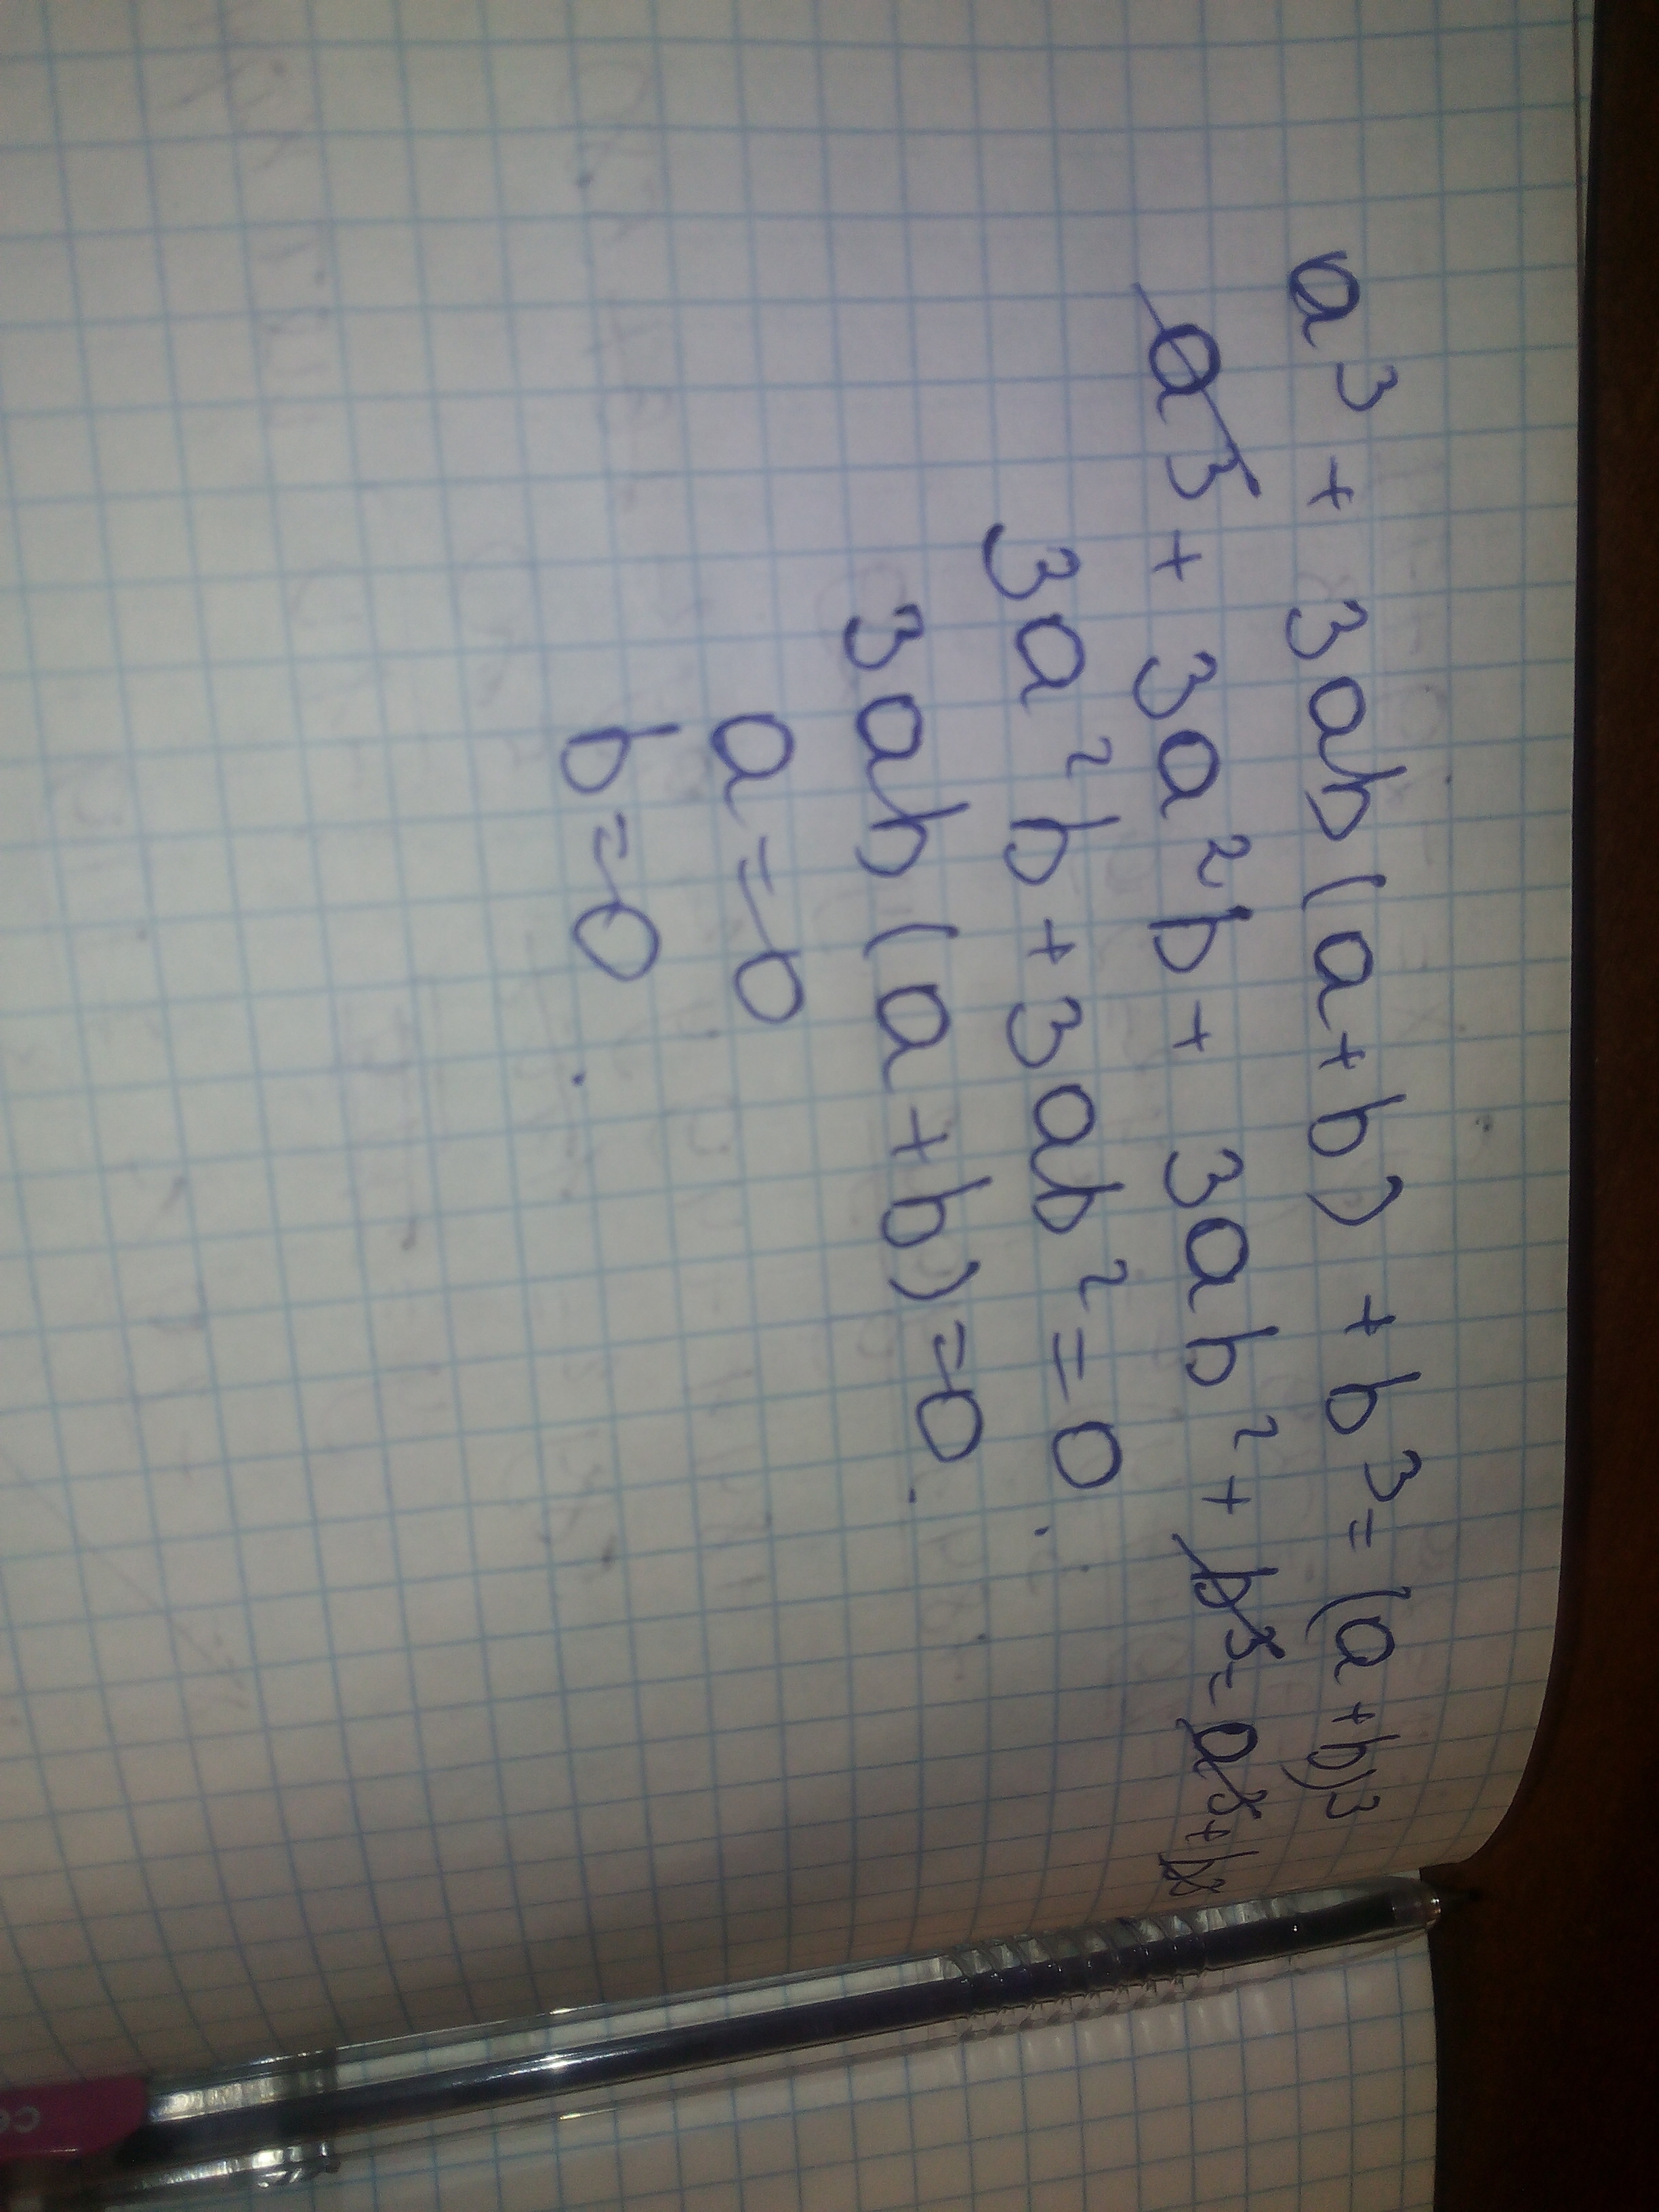 a³ + 3ab(a+b) + b³ = (a+b)³
a³ + 3a²b + 3ab² + b³ = a³ + b³
3a²b + 3ab² = 0
3ab(a+b) = 0
a = 0
b = 0